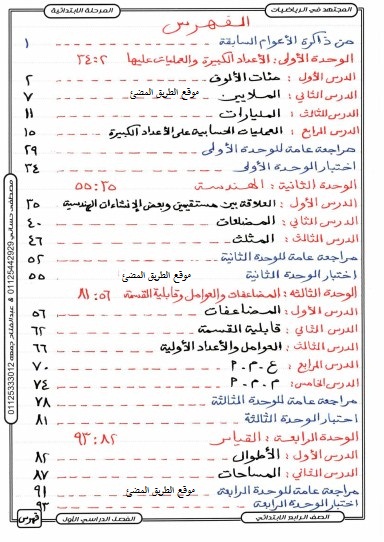 المجتهد في الرياضيات
المرحلة الابتدائية
الفهرس
من ذاكرة الأعوام السابقة ١
الوحدة الأولى: الأعداد الكبيرة والعمليات عليها ٢ : ٢٤
الدرس الأول : مئات الألوف ٢
الدرس الثاني : الملايين ٧
موقع الطريق المضئ
الدرس الثالث : المليارات ١١
الدرس الرابع : العمليات الحسابية على الأعداد الكبيرة ١٥
مراجعة عامة للوحدة الأولى ٢٩
اختبار الوحدة الأولى ٣٤
الوحدة الثانية : الهندسة ٣٥ : ٥٥
الدرس الأول : العلاقة بين مستقيمين وبعض الإنشاءات الهندسية ٣٥
الدرس الثاني : المضلعات ٤٠
الدرس الثالث : المثلث ٤٦
مراجعة عامة للوحدة الثانية ٥٢
اختبار الوحدة الثانية ٥٥
موقع الطريق المضئ
الوحدة الثالثة : المضاعفات والعوامل وقابلية القسمة ٥٦ : ٨١
الدرس الأول : المضاعفات ٥٦
الدرس الثاني : قابلية القسمة ٦٢
الدرس الثالث : العوامل والأعداد الأولية ٦٦
الدرس الرابع : ع . م . م ٧٠
الدرس الخامس : م . م . م ٧٤
مراجعة عامة للوحدة الثالثة ٧٨
اختبار الوحدة الثالثة ٨١
الوحدة الرابعة : القياس ٨٢ : ٩٣
الدرس الأول : الأطوال ٨٢
الدرس الثاني : المساحات ٨٧
مراجعة عامة للوحدة الرابعة ٩١
موقع الطريق المضئ
اختبار الوحدة الرابعة ٩٣
الصف الرابع الابتدائي
الفصل الدراسي الأول
فهرس
01125442929 & عبدالفتاح جمعه 01125333012